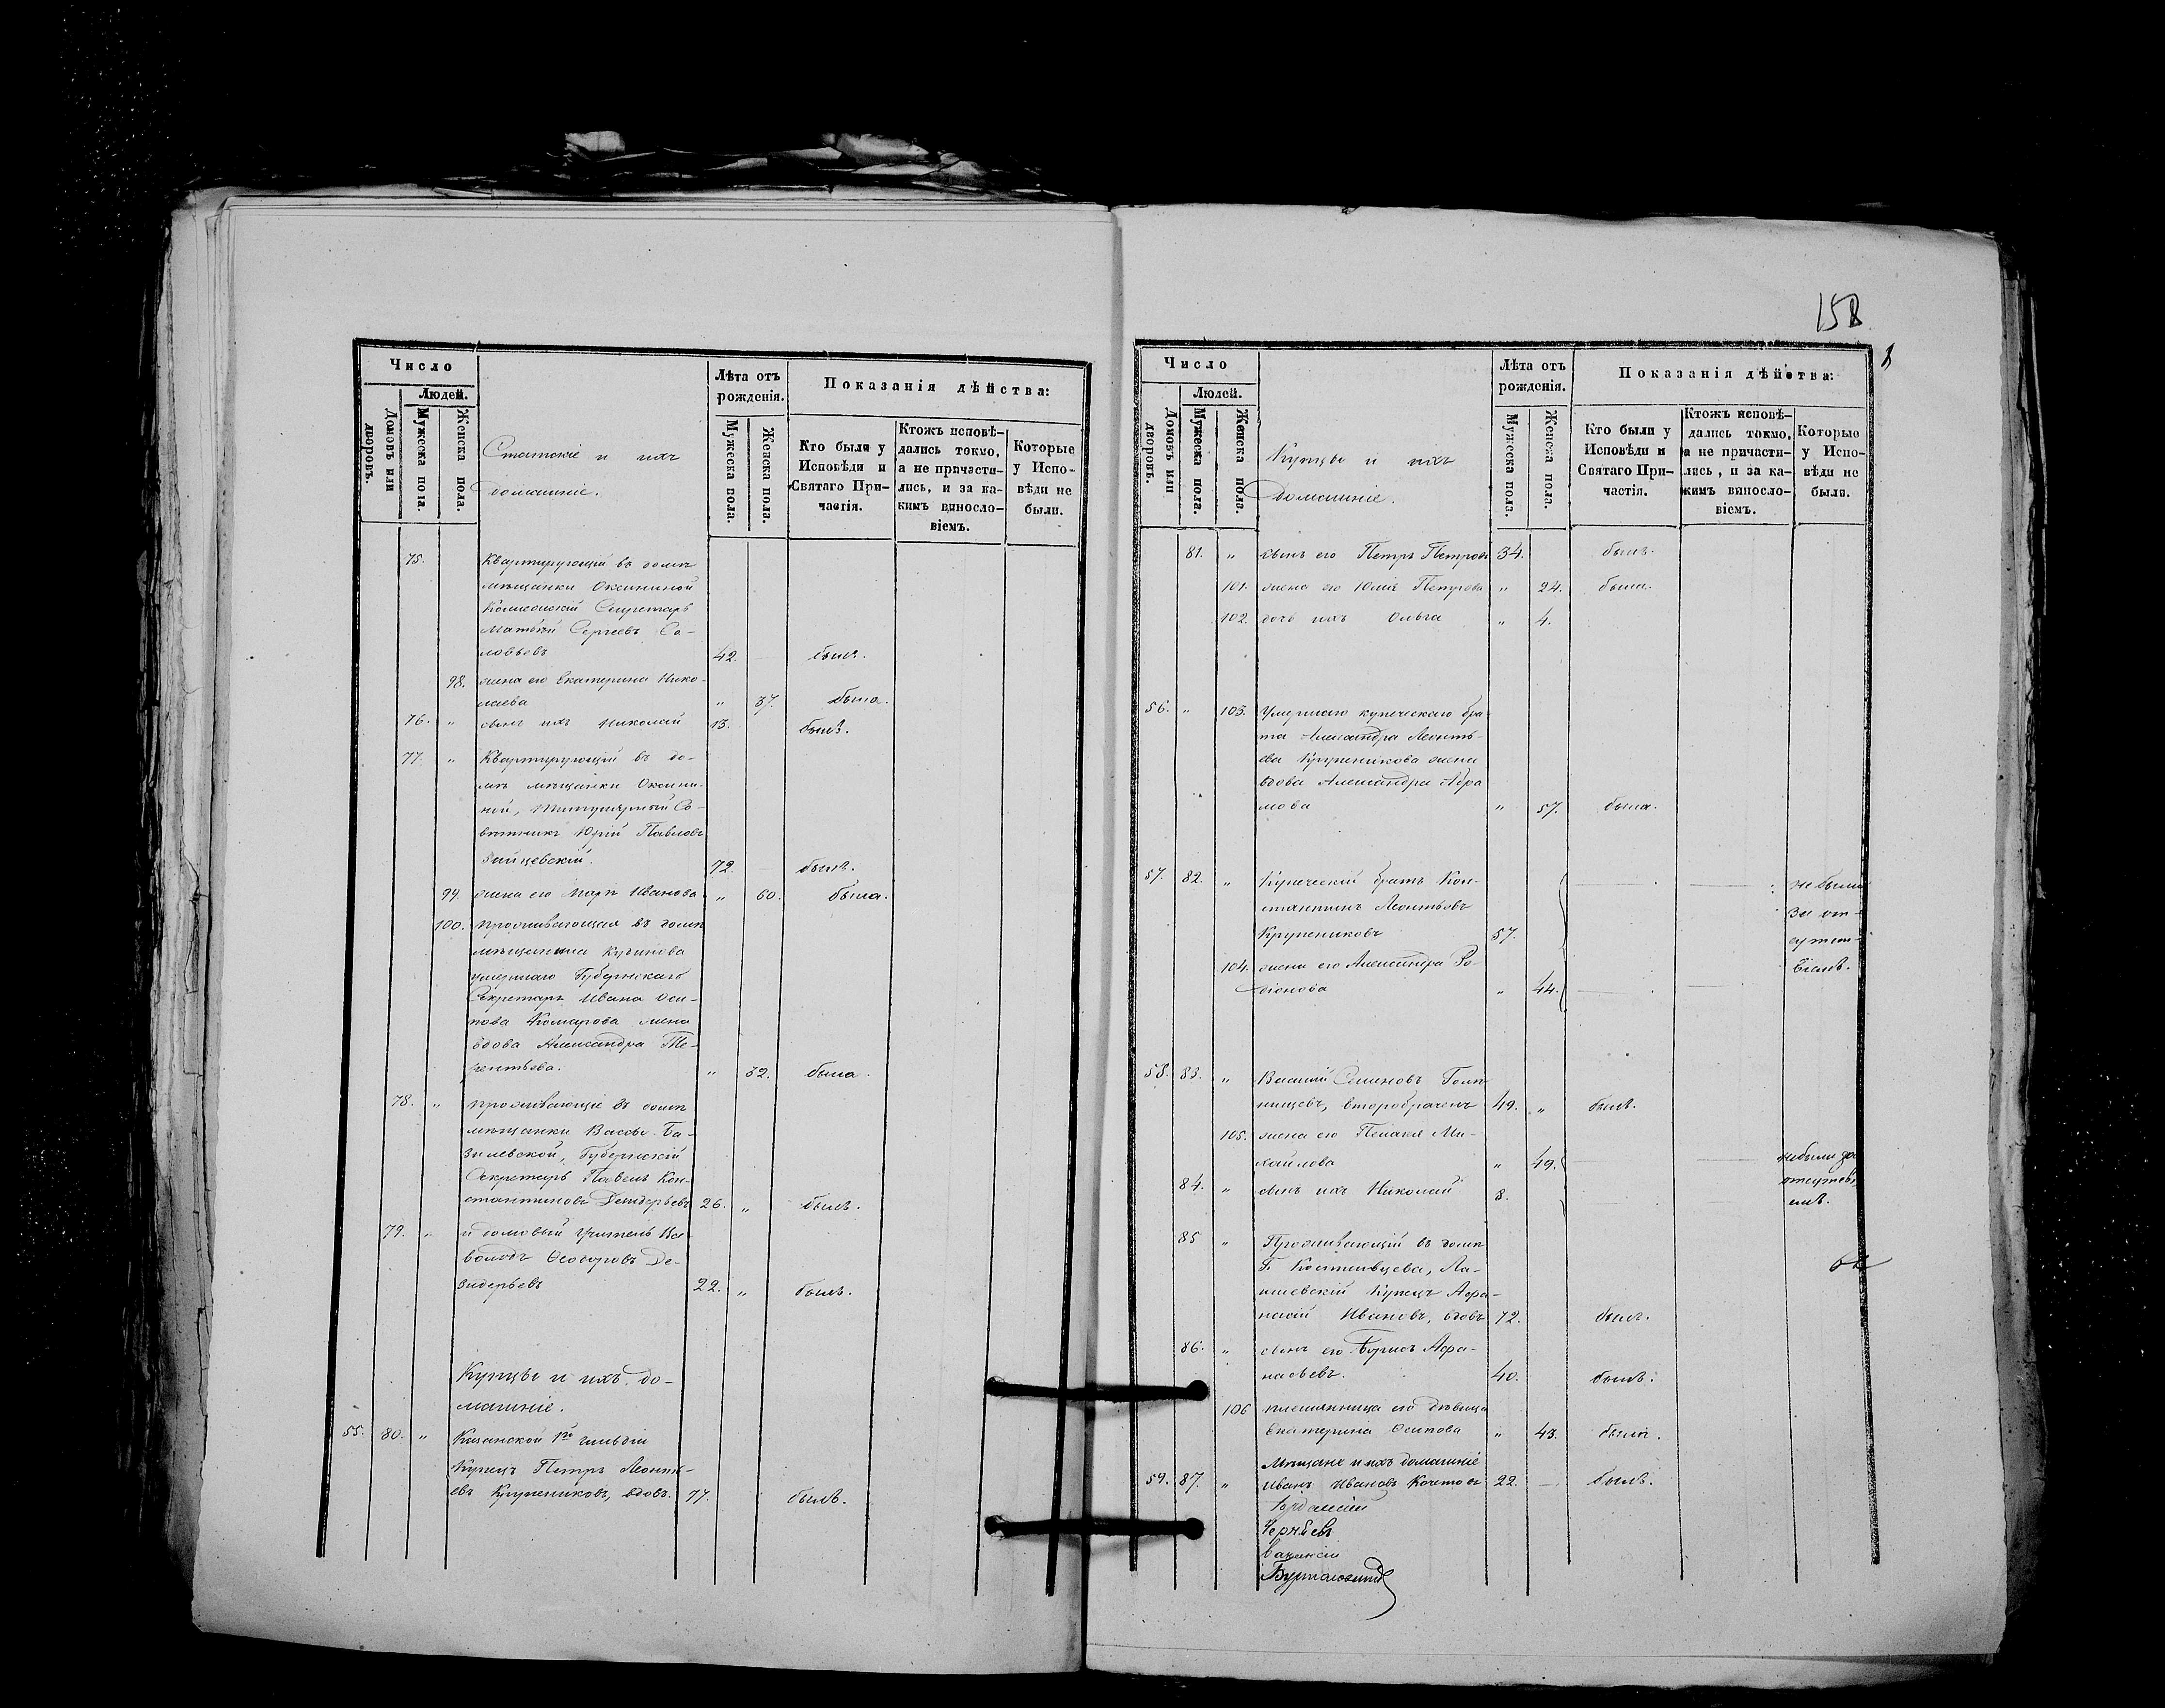 Число
Людей.
Домовъ или дворовъ.
Мужеска пола.
Женска пола.
Статскіе и ихъ
домашніе.
Лѣта отъ рожденія.
Мужеска пола.
Женска пола.
Показанія дѣйства:
Кто были у Исповѣди и Святаго Причастія.
Ктожъ исповѣдались токмо, а не причастились, и за какимъ винословіемъ.
Которые у Исповѣди не были.
75. Квартирующій въ домѣ
мѣщанки Оксининой
Коллежскій Секретарь
Матвѣй Сергѣевъ Со-
ловьевъ 42. былъ.
98. жена его Екатерина Нико-
лаева " 37. была.
76. " сынъ ихъ Николай 13. былъ.
77. " Квартирующій въ до-
мѣ мѣщанки Оксини-
ной, Титулярный Со-
вѣтникъ Юрій Павловъ
72. былъ.
99. жена его Иванова " 60. была.
100. проживающая въ домѣ
мѣщанина
умершаго Губернскаго
Секретаря Ивана Оси-
пова Комарова жена
вдова Александра Те-
рентьева. " 32. была.
78. " проживающіе въ домѣ
мѣщанки Ба-
зилевской, Губернскій
Секретарь Павелъ Кон-
стантиновъ 26. " былъ.
79. " и домовый учитель Все-
володъ Ѳеодоровъ Де-
зидерьевъ 22. " былъ.
Купцы и ихъ до-
машніе.
55. 80. " Казанской 1й гильдіи
Купецъ Петръ Леонть-
евъ Крупениковъ, вдовъ. 77. былъ.
158
Число
Людей.
Домовъ или дворовъ.
Мужеска пола.
Женска пола.
Купцы и ихъ
домашніе.
Лѣта отъ рожденія.
Мужеска пола.
Женска пола.
Показанія дѣйства:
Кто были у Исповѣди и Святаго Причастія.
Ктожъ исповѣдались токмо, а не причастились, и за какимъ винословіемъ.
Которые у Исповѣди не были.
81. " сынъ его Петръ Петровъ 34. былъ.
101. жена его Юлія Петрова " 24. была.
102. дочь ихъ Ольга " 4.
56. " 103. Умершаго купеческаго бра-
та Александра Леонть-
ева Крупеникова жена
вдова Александра Абра
мова " 57. была.
57. 82. " Купеческій братъ Кон-
стантинъ Леонтьевъ
Крупениковъ 57. не были
за от-
сутст-
віемъ.
104. жена его Александра Ро-
діонова " 44.
58. 83. " Василій Семеновъ
второбраченъ 49. " былъ.
105. жена его Пелагея Ми-
хайлова " 49. не были за
отсутстві
емъ.
84. " сынъ ихъ Николай 8.
85 " Проживающій въ домѣ
Г. Костливцева, Ла-
ишевскій Купецъ Афа-
насій Ивановъ, вдовъ 72. былъ.
86. " сынъ его Борисъ Афа-
насьевъ. 40. былъ.
106 племянница его дѣвица
Екатерина Осипова " 43. была.
Мѣщане и ихъ домашніе
59. 87. " Иванъ Ивановъ 22. былъ.